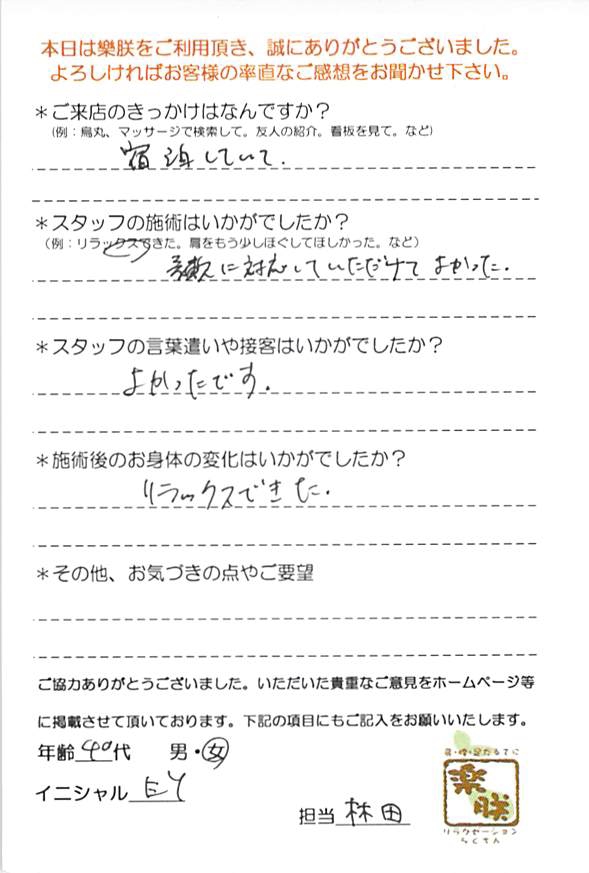 本日は樂朕をご利用頂き、誠にありがとうございました。
よろしければお客様の率直なご感想をお聞かせ下さい。
＊ご来店のきっかけはなんですか？
（例：烏丸、マッサージで検索して。友人の紹介。看板を見て。など）
宿泊していて.
＊スタッフの施術はいかがでしたか？
（例：リラックスできた。肩をもう少しほぐしてほしかった。など）
柔軟に対応していただけてよかった.
＊スタッフの言葉遣いや接客はいかがでしたか？
よかったです.
＊施術後のお身体の変化はいかがでしたか？
リラックスできた.
＊その他、お気づきの点やご要望
ご協力ありがとうございました。いただいた貴重なご意見をホームページ等
に掲載させて頂いております。下記の項目にもご記入をお願いいたします。
年齢 40代 男・女
イニシャル EY
担当 林田
楽
朕
リラクゼーション
らくちん